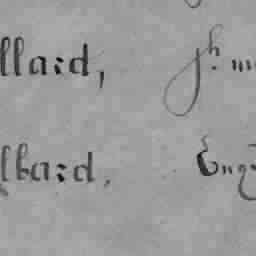 llard, Jh.
lbard, Eng